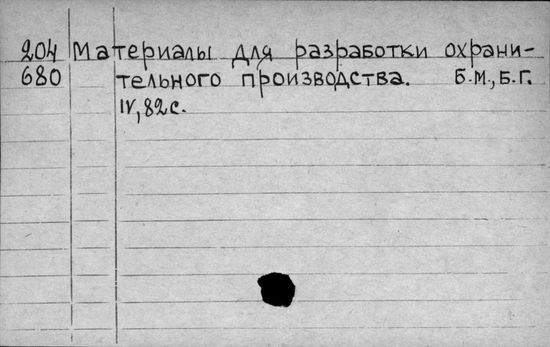 204 Материалы для разработки охрани-
680 тельного производства. Б.М., Б.Г.
IV, 82 с.